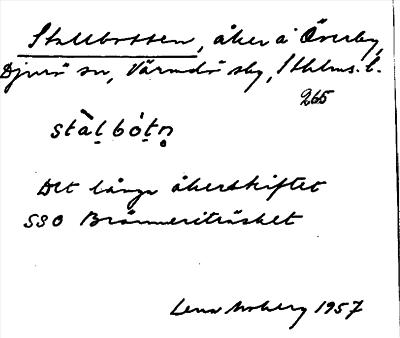 Stallbotten, åker å Överby,
Djurö sn, Värmdö sky, Sthlms. l.
265
stàl bótn̥
Det långa åkerskiftet
SSO Bränneriträsket
Lena Moberg 1957